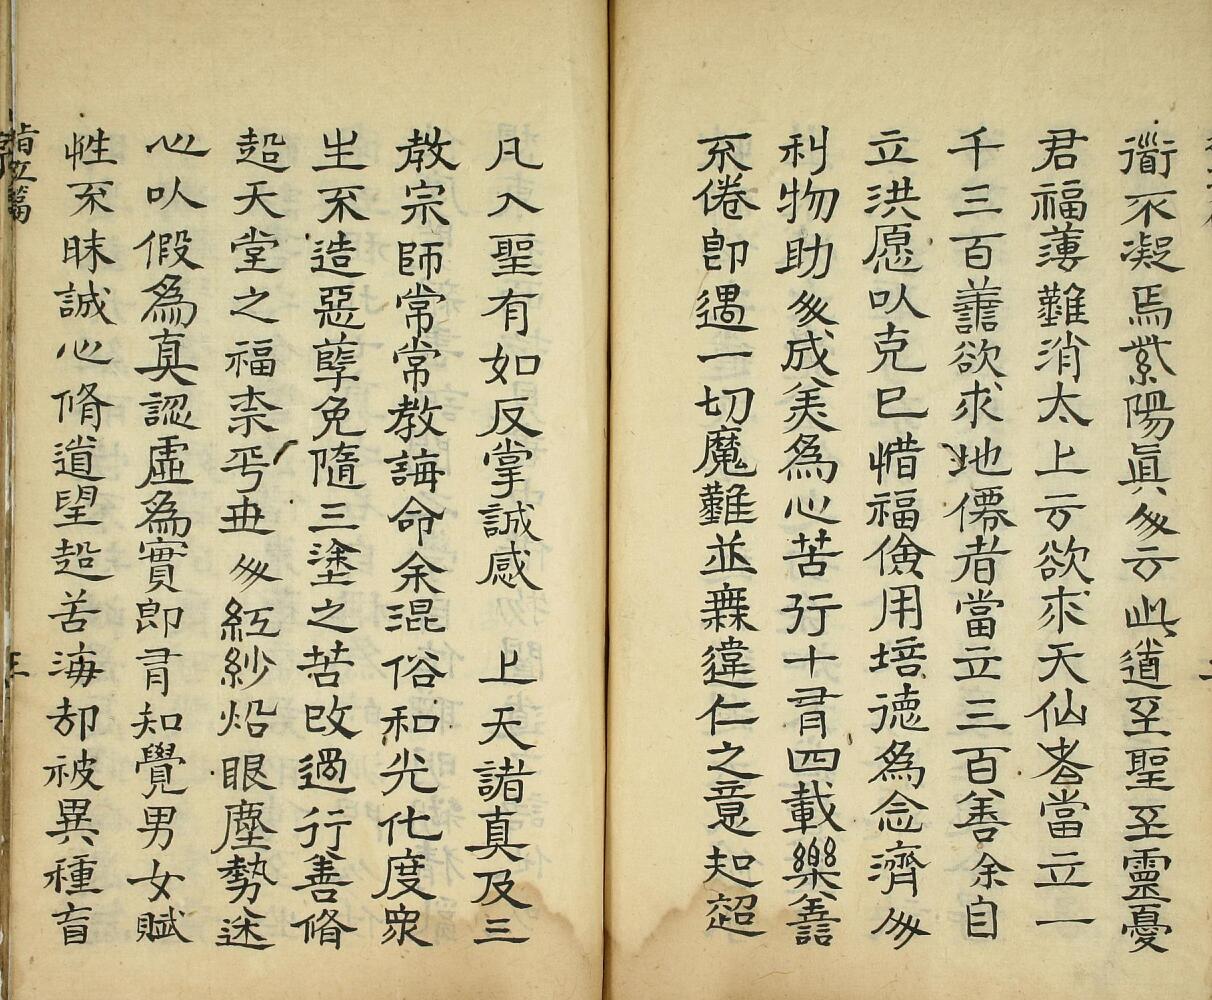 衟不凝焉紫陽眞人云此道至聖至靈憂
君福薄難消太上云欲求天仙者當立一
千三百譱欲求地僊者當立三百善余自
立洪愿㕥克己惜福儉用培德為念濟人
利物助人成美為心苦行十有四載樂譱
不倦卽遇一切魔難並無違仁之意知超
凡入聖有如反掌誠感　上天諸真及三
教宗師常常教誨命余混俗和光化度眾
生不造惡孽免隨三塗之苦改過行善脩
超天堂之福柰乎世人紅紗焰眼塵勢迷
心㕥假為真認虛為實卽有知覺男女賦
性不昧誠心脩道望超苦海却被異種盲
指玄篇
三